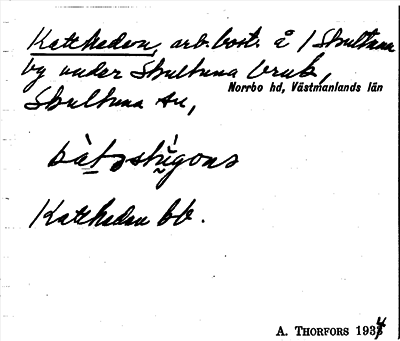 Kattheden, arb.bost. å / Skultuna
by under Skultuna bruk,
Norrbo hd, Västmanlands län
Skultuna sn,
Kattheden bb.
A. THORFORS 1934